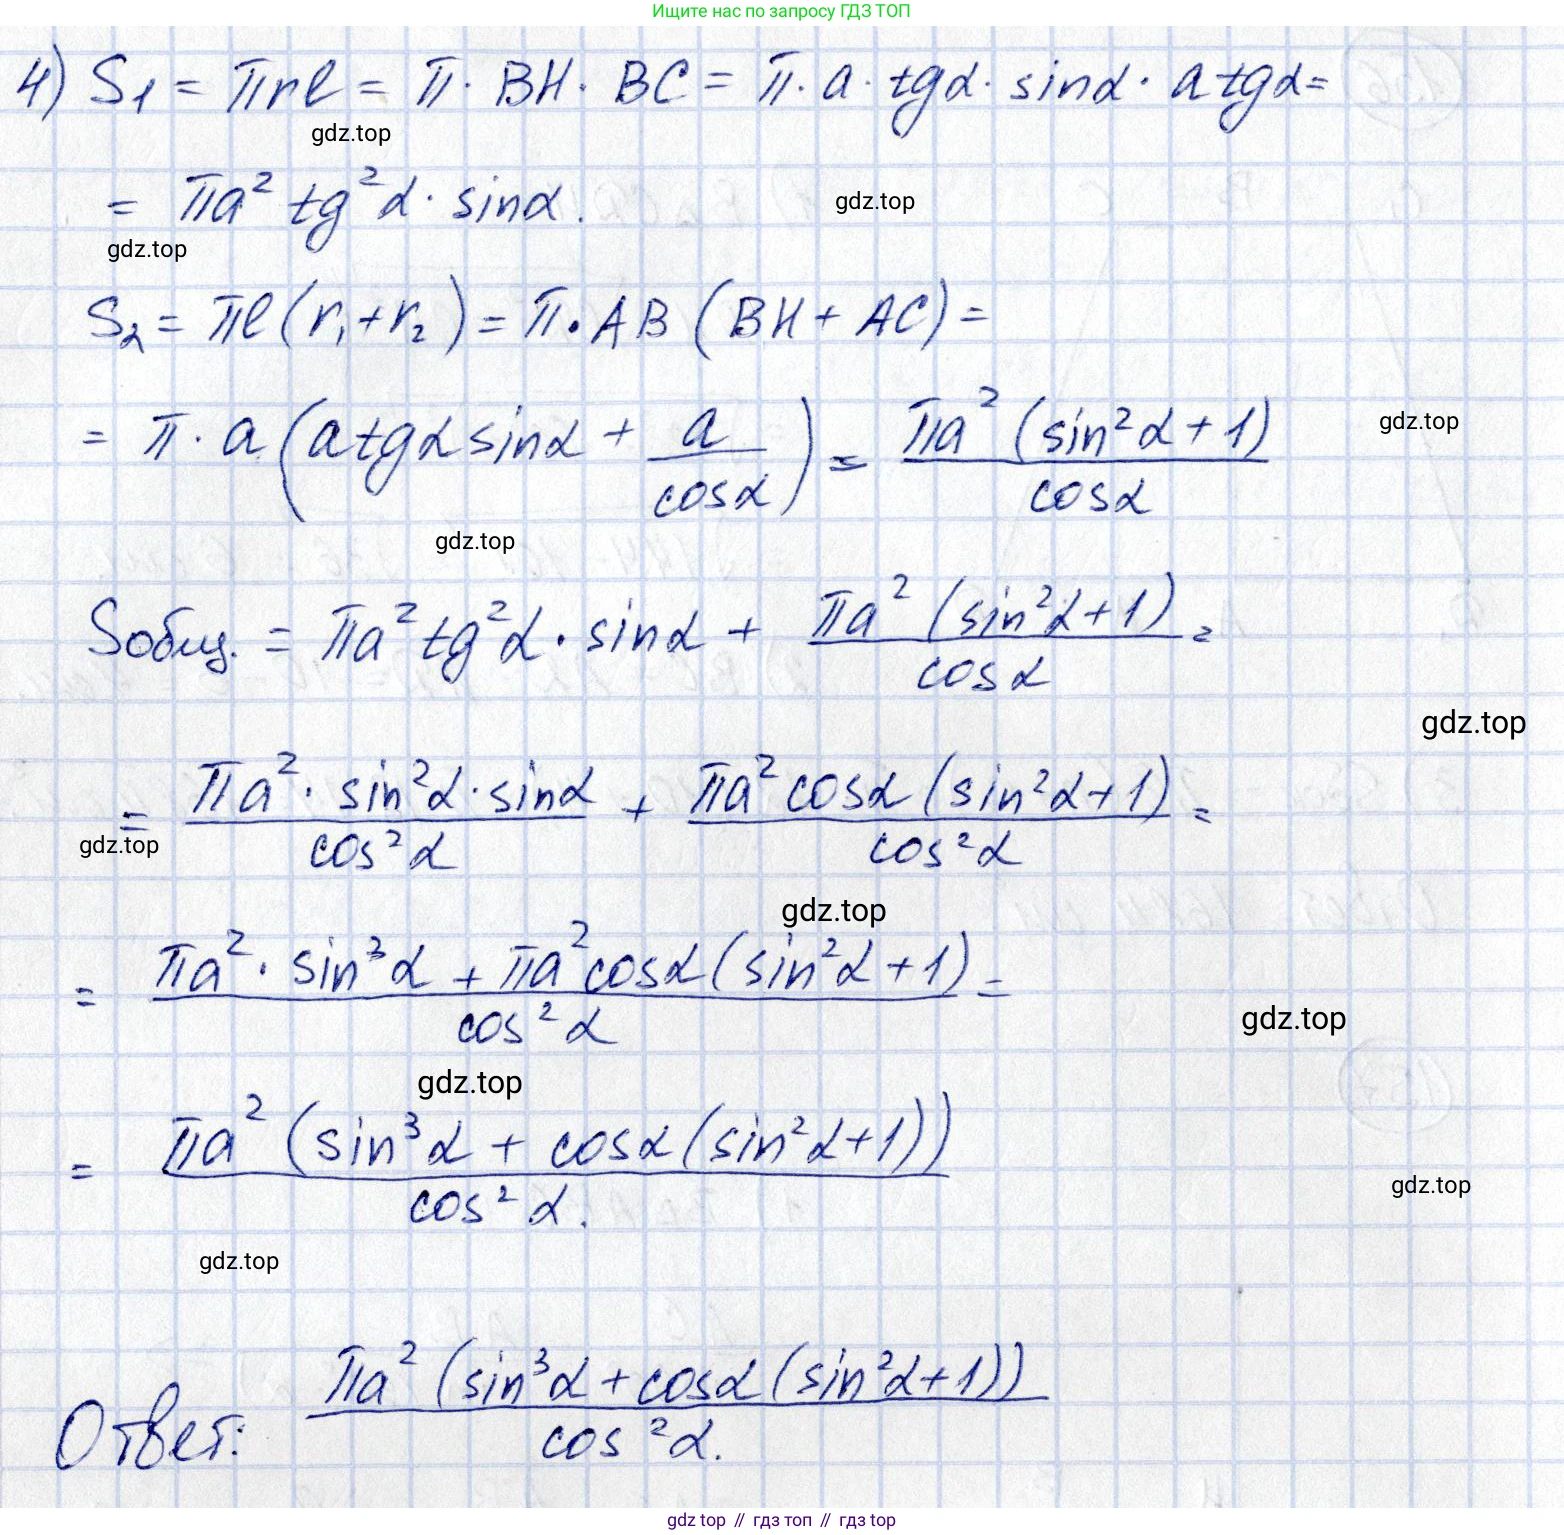 Ищите нас по запросу ГДЗ ТОП
4) S₁ = πrl = π · BH · BC = π · a · tgα · sinα · a tgα =
gdz.top
= πa² tg²α · sinα.
gdz.top
gdz.top
S₂ = πl(r₁+r₂) = π · AB (BH + AC) =
= π · a (a tgα sinα + a/cosα) = πa² (sin²α + 1)/cosα
gdz.top
gdz.top
Sобщ. = πa² tg²α · sinα + πa² (sin²α+1)/cosα =
gdz.top
= πa² · sin²α · sinα/cos²α + πa² cosα (sin²α+1)/cos²α =
gdz.top
gdz.top
= πa² · sin³α + πa² cosα (sin²α+1)/cos²α =
gdz.top
gdz.top
= πa² (sin³α + cosα (sin²α+1))/cos²α.
gdz.top
gdz.top
Ответ: πa² (sin³α + cosα (sin²α+1))/cos²α.
gdz top // гдз топ // гдз top